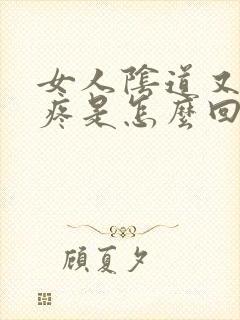 女人陰道又
疼是怎麼回
顧夏夕